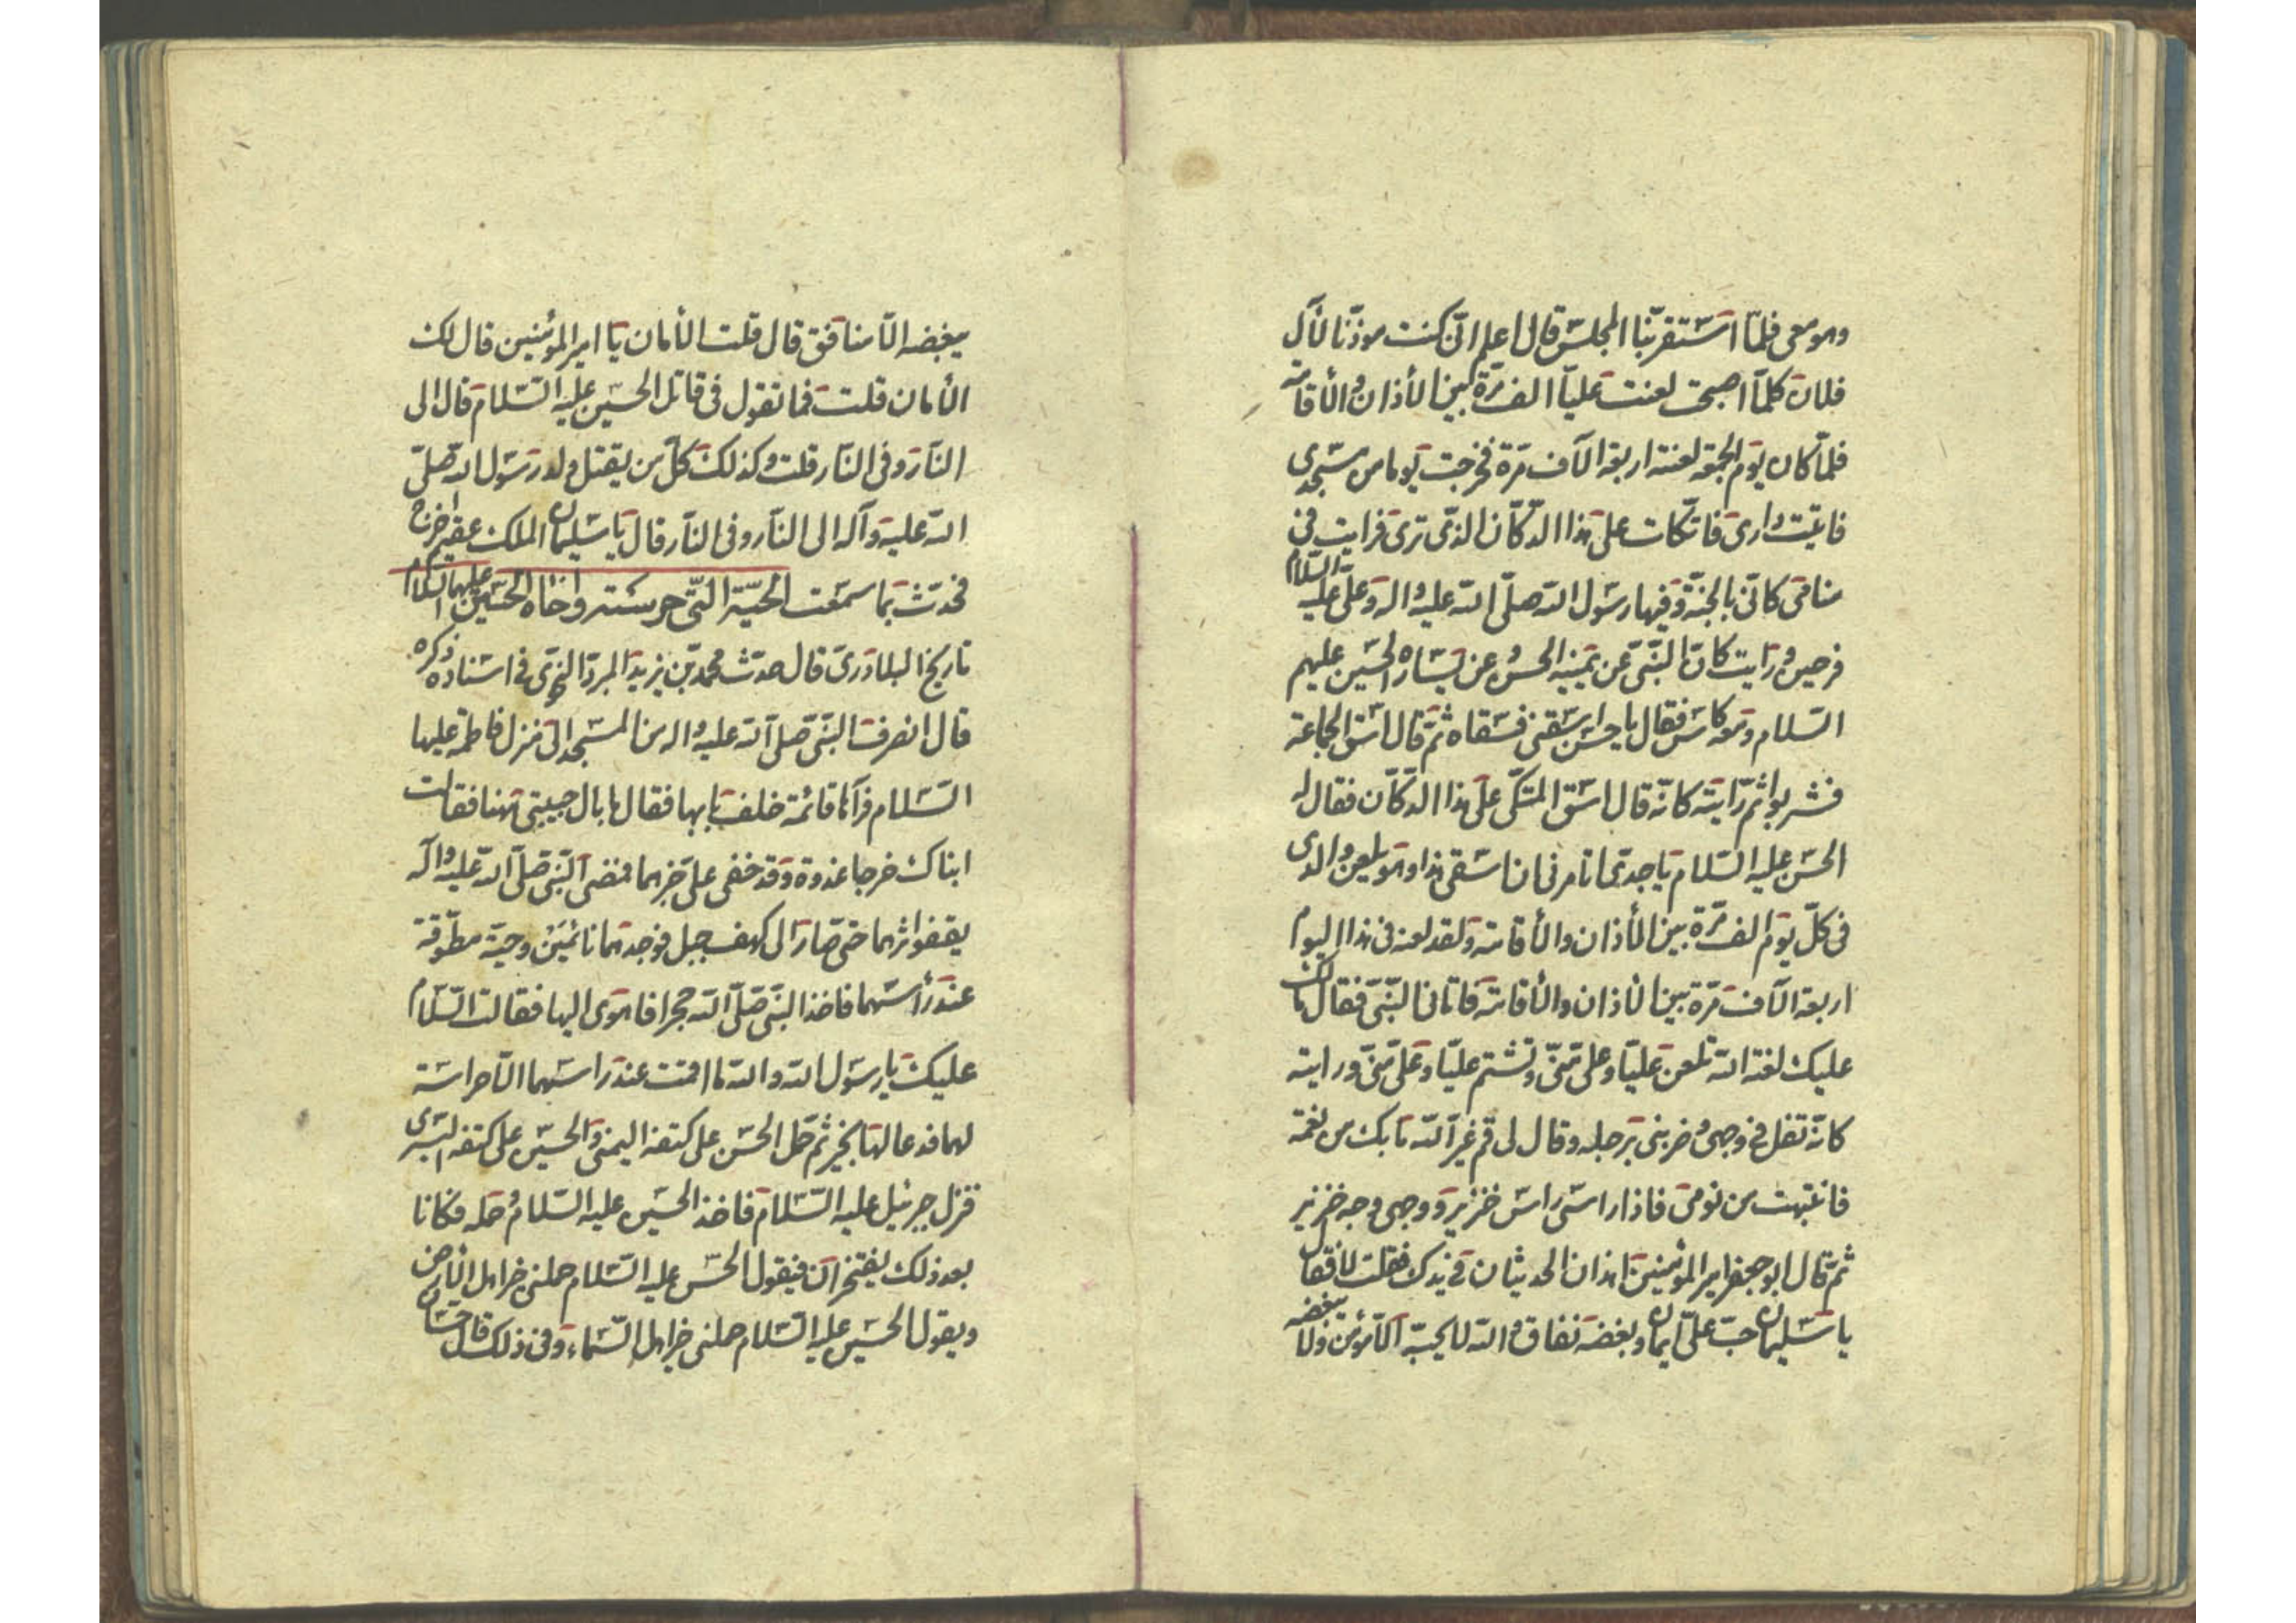 وهو معى فلمّا استقرّبنا المجلس قال اعلم انّى كنت موذّنا لآل
فلان كلّما اصبحت لعنت عليّا الف مرّة بين الأذان والأقامة
فلمّا كان يوم الجمعة لعنته اربعة الآف مرّة فخرجت يوما من مسجدى
فاتيت دارى فاتّكات على هذا الدكّان الذى ترى فرايت فى
منامى كانّى بالجنّة وفيها رسول الله صلّى الله عليه واله وعلى عليه السّلام
فرحين ورايت كانّ النّبىّ عن يمينه الحسن وعن يساره الحسين عليهم
السّلام ومعه كاس فقال يا حسن اسقنى فسقاه ثمّ قال اسق الجماعة
فشربوا ثمّ رايته كانّه قال اسق المتّكى على هذا الدكّان فقال له
الحسن عليه السّلام يا جدّى اتامرنى ان اسقى هذا وهو يلعن والدى
فى كلّ يوم الف مرّة بين الأذان والأقامة ولقد لعنه فى هذا اليوم
اربعة الآف مرّة بين الأذان والأقامة فاتانى النّبىّ فقال مالك
عليك لعنة الله تلعن عليّا وعلى منّى وتشتم عليّا وعلى منّى ورايته
كانّه تفل فى وجهى وضربنى برجله وقال لى قم غيّر الله ما بك من نعمة
فانتبهت من نومى فاذا راسى راس خنزير ووجهى وجه خنزير
ثمّ قال ابو جعفر امير المؤمنين اهذان الحديثان فى يدك فقلت لا فقال
يا سليمان حبّ علىّ ايمان وبغضه نفاق والله لا يحبّه الّا مؤمن ولا يبغضه
يبغضه الّا منافق قال قلت الأمان يا امير المؤمنين قال لك
الأمان قلت فما تقول فى قاتل الحسين عليه السّلام قال الى
النّار وفى النّار قلت وكذلك كلّ من يقتل ولد رسول الله صلّى
الله عليه وآله الى النّار وفى النّار قال يا سليمان الملك عقيم اخرج
فحدّث بما سمعت الحيّة الّتى حرسته واخاه الحسين عليهما السّلام
تاريخ البلاذرى قال حدّث محمّد بن يزيد المبرّد النّحوى فى اسناد ذكره
قال انصرف النّبى صلّى الله عليه واله من المسجد الى منزل فاطمة عليها
السّلام فرآها قائمة خلف بابها فقال ما بال حبيبتى هٰهنا فقالت
ابناك خرجا غدوة وقد خفى علىّ خبرهما فمضى النّبى صلّى الله عليه وآله
يقفوا اثرهما حتى صار الى كهف جبل فوجدهما نائمين وحيّة مطوّقة
عند رأسهما فاخذ النّبى صلّى الله حجرا فاهوى اليها فقالت السّلام
عليك يا رسول الله والله ما اقمت عند راسهما الّا حراسة
لهما فدعا لها بخير ثمّ حمل الحسن على كتفه اليمنى والحسين على كتفه اليسرى
فنزل جبرئيل عليه السّلام فاخذ الحسين عليه السّلام وحمله فكانا
بعد ذلك يفتخران فيقول الحسن عليه السّلام حملنى خير اهل الأرض
ويقول الحسين عليه السّلام حملنى خير اهل السّماء وفى ذلك قال حسّان